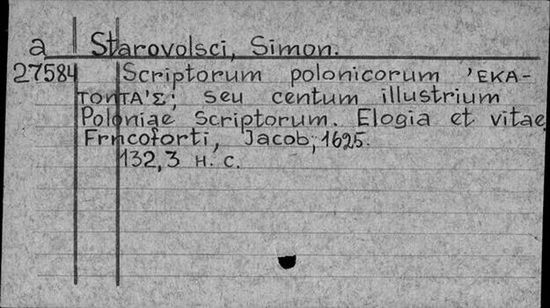 a Starovolsci, Simon.
27584 Scriptorum polonicorum 'EKA-
TOПTA'Σ; seu centum illustrium
Poloniae Scriptorum. Elogia et vitae,
Frncoforti, Jacob, 1625.
132,3 н. с.